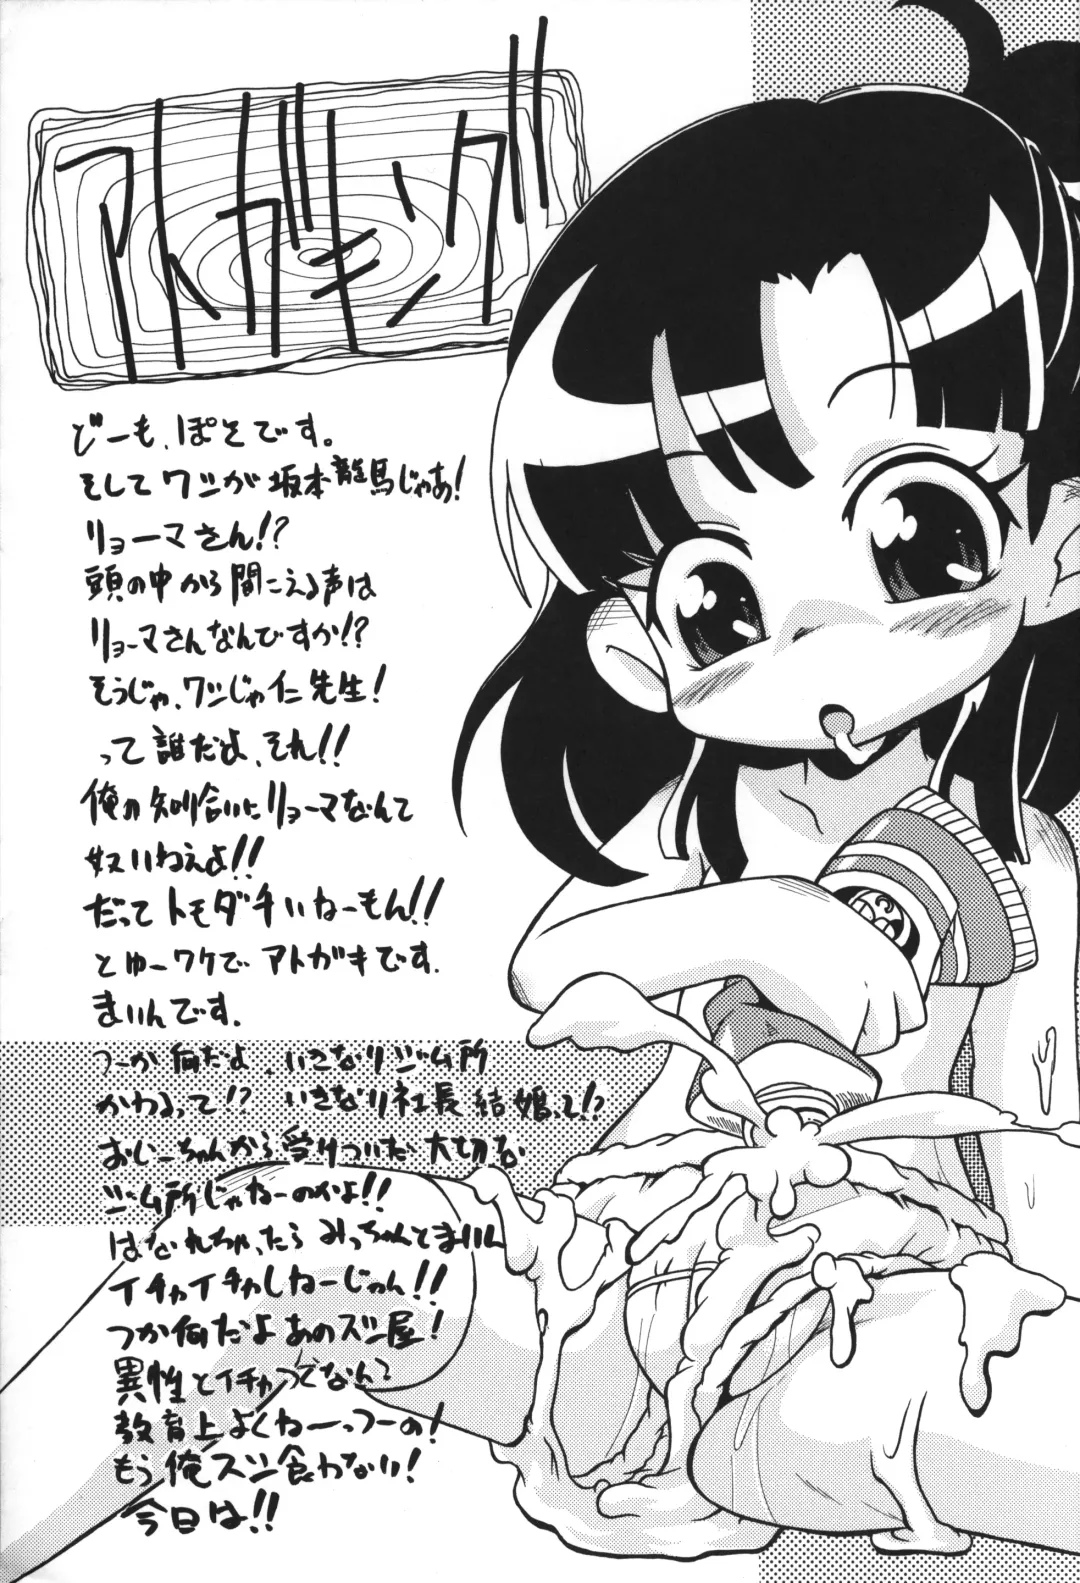 アトガキング
どーも、ぽそです。
そしてワシが坂本龍馬じゃあ!
リョーマさん!?
頭の中から聞こえる声は
リョーマさんなんですか!?
そうじゃ、ワシじゃ仁先生!
って誰だよ、それ!!
俺の知り合いにリョーマなんて
奴いねえよ!!
だってトモダチいねーもん!!
とゆーワケでアトガキです。
まいんです。
つーか何だよ、いきなり事ム所
かわるって!? いきなり社長結婚って!?
おじーちゃんから受けついだ大切な
ジム所じゃねーのかよ!!
はなれちゃったらみっちゃんとまいん
イチャイチャしねーじゃん!!
つか何だよあのズシ屋!
異性とイチャつくなんて
教育上よくねーっつーの!
もう俺スシ食わない!
今日は!!